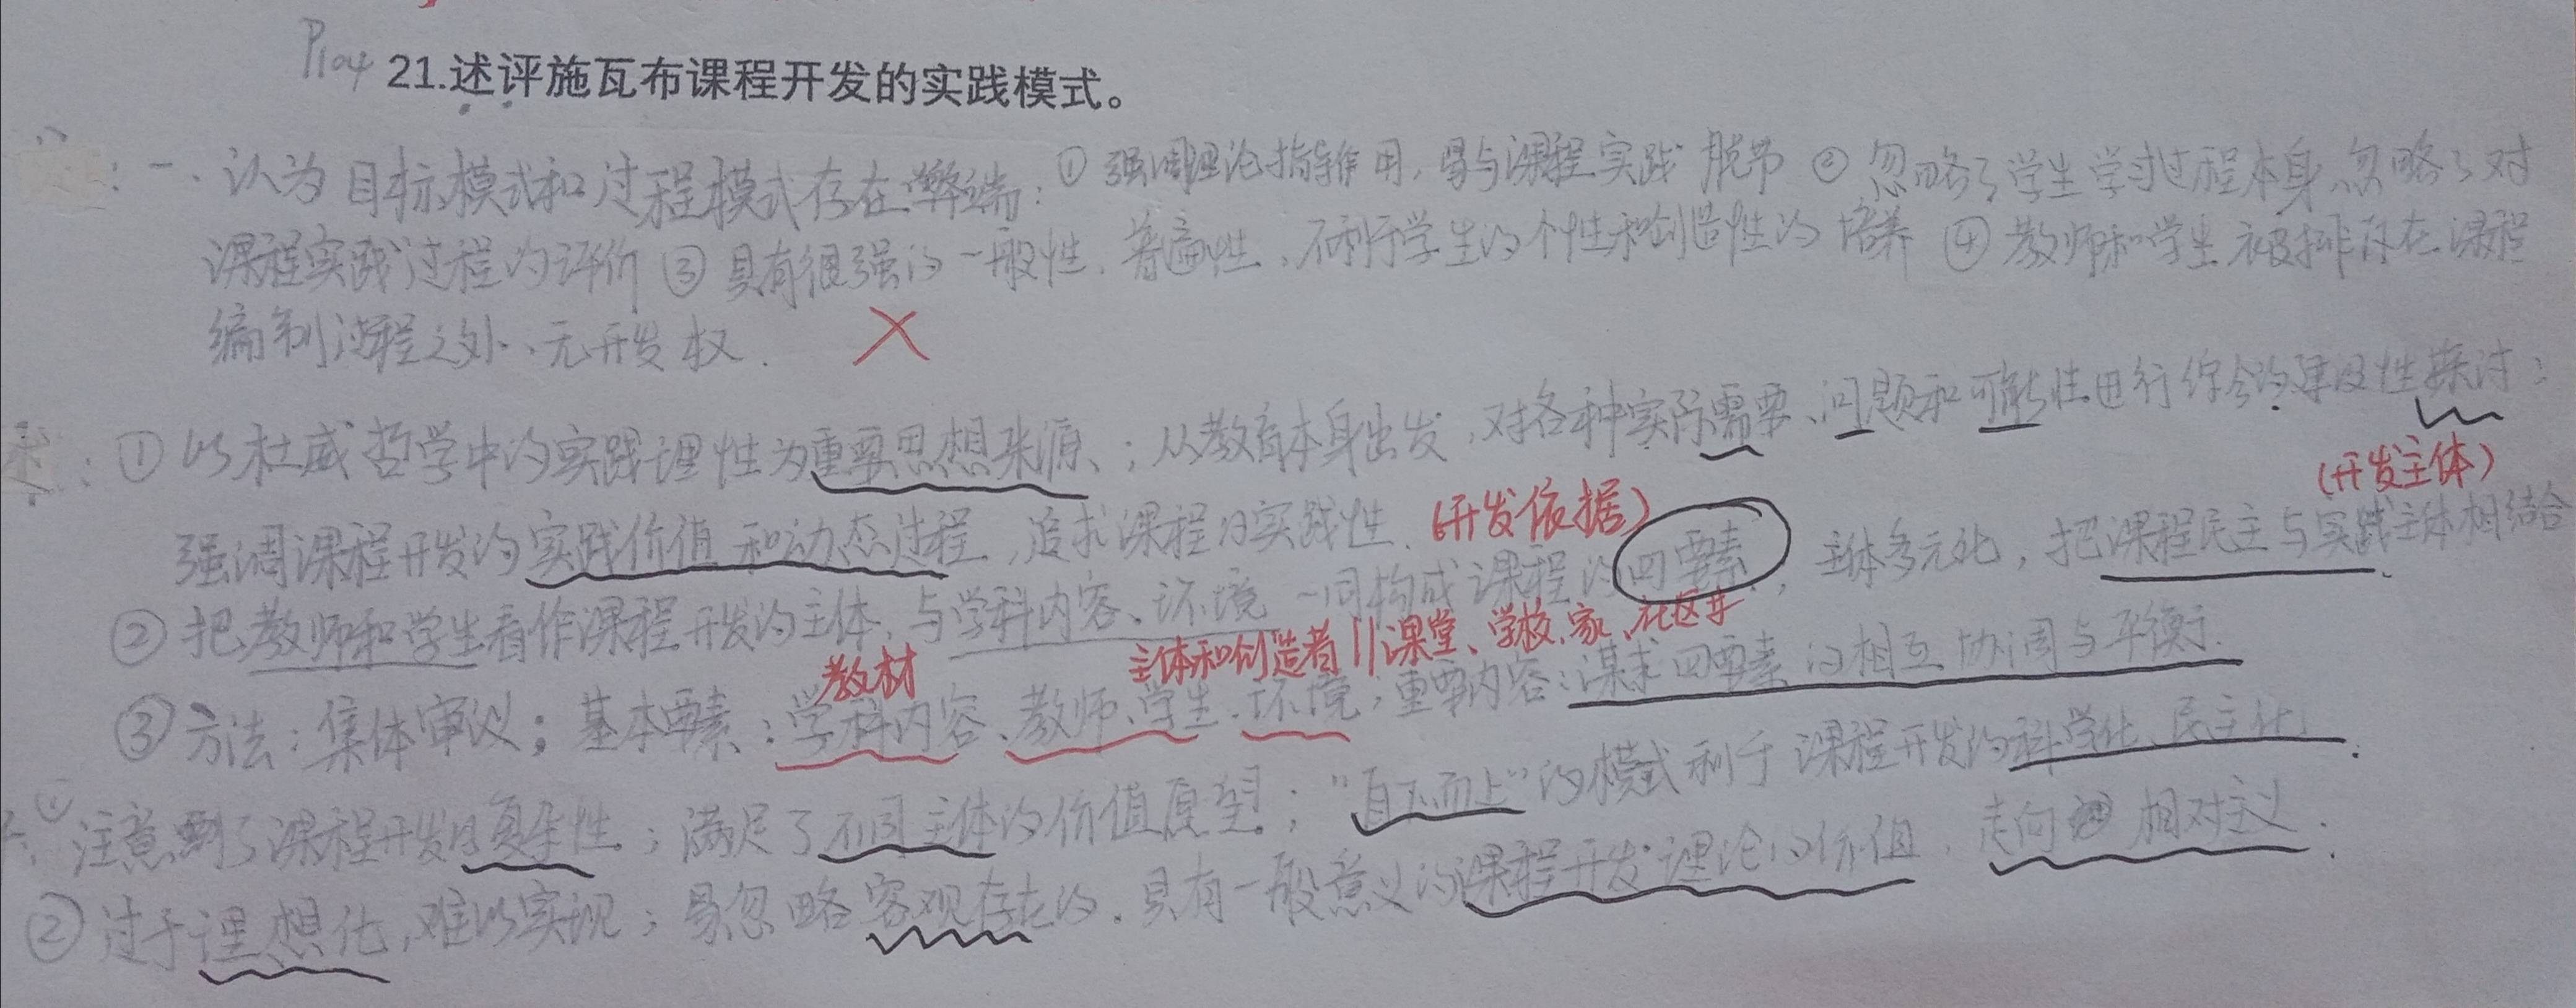 P104 21.述评施瓦布课程开发的实践模式。
一. 认为目标模式和过程模式存在弊端：① 强调理论指导作用，易与课程实践脱节 ② 忽略了学生学习过程本身、忽略了对
课程实践过程的评价 ③ 具有很强的一般性、普遍性，不利于学生的个性和创造性的培养 ④ 教师和学生被排斥在课程
编制过程之外、无开发权. ×
述：① 以杜威哲学中的实践理性为重要思想来源、；从教育本身出发，对各种实际需要、问题和可能性进行综合的建设性探讨；
(开发主体)
强调课程开发的实践价值和动态过程，追求课程的实践性. (开发依据)
② 把教师和学生看作课程开发的主体，与学科内容、环境一同构成课程的四要素，主体多元化，把课程民主与实践主体相结合
教材 主体和创造者 || 课堂、学校、家、社区等
③ 方法：集体审议；基本要素：学科内容、教师、学生、环境；重要内容：谋求四要素的相互协调与平衡.
① 注意到了课程开发的复杂性；满足了不同主体的价值愿望；“自下而上”的模式利于课程开发的科学化、民主化.
② 过于理想化，难以实现；易忽略客观存在的，具有一般意义的课程开发理论的价值，走向相对主义.